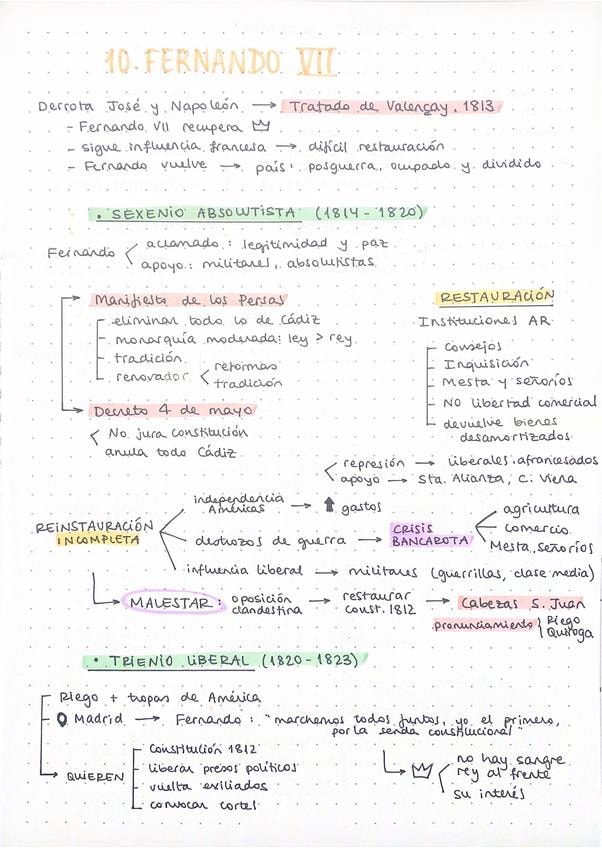 10. FERNANDO VII
Derrota José y Napoleón → Tratado de Valençay. 1813
- Fernando VII recupera
- sigue influencia francesa → difícil restauración.
- Fernando vuelve → país: posguerra, ocupado y dividido
• SEXENIO ABSOLUTISTA (1814 - 1820)
Fernando
aclamado: legitimidad y paz.
apoyo: militares, absolutistas.
Manifiesto de los Persas
- eliminar todo lo de Cádiz
- monarquía moderada: ley > rey.
- tradición.
- renovador
reformas
tradición
Decreto 4 de mayo
No jura constitución
anula todo Cádiz.
RESTAURACIÓN
Instituciones AR.
- consejos
- Inquisición
- Mesta y señoríos
- NO libertad comercial
- devuelve bienes
desamortizados.
represión → liberales, afrancesados
apoyo → Sta. Alianza, C. Viena
REINSTAURACIÓN
INCOMPLETA
independencia
Américas → ↑ gastos
destrozos de guerra → CRISIS
BANCAROTA
agricultura
comercio.
Mesta, señoríos
influencia liberal → militares (guerrillas, clase media)
MALESTAR: oposición
clandestina → restaurar
const. 1812 → Cabezas S. Juan
pronunciamiento
Riego
Quiroga
• TRIENIO LIBERAL (1820 - 1823)
Riego + tropas de América
Madrid → Fernando: "marchemos todos juntos, yo el primero,
por la senda constitucional"
QUIEREN
- Constitución 1812
- liberar presos políticos
- vuelta exiliados
- convocar cortes
no hay sangre
rey al frente
su interés